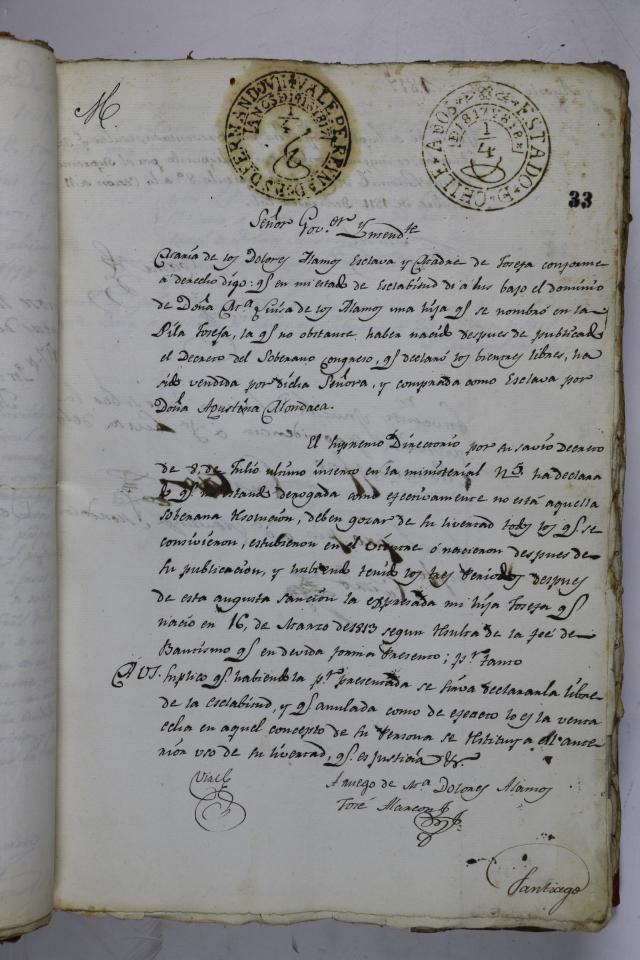 M.
VALE PARA EL REINADO D.S.D. FERNANDO VII
AÑOS D 1816 Y 1817
1/4
ESTADO D. CHILE AÑOS
D 1817 Y 1818
1/4
33
Señor Gov.or Yntend.te
Maria de los Dolores Alamos Esclava y Madre de Josefa conforme
a derecho digo: qe en mi estado de Esclabitud di a lus bajo el dominio
de Doña Ma. Luisa de los Alamos una hija qe se nombró en la
Pila Josefa, la qe no obstante haber nacido despues de publicado
el Decreto del Soberano Congreso, qe declaró los bientres libres, ha
sido vendida por dicha Señora, y comprada como Esclava por
Doña Agustina Mondaca.
El Supremo Directorio por su savio Decreto
de 8, de Julio ultimo inserto en la ministerial N 3. ha declara
do qe no estando derogada como efectivamente no está aquella
Soberana Resolucion, deben gozar de su livertad todos los qe se
concivieron, estubieron en el vientre ó nacieron despues de
su publicacion, y habiendo tenido los tres Periodos despues
de esta augusta sancion la expresada mi hija Josefa qe
nacio en 16, de Marzo de 1813 segun Resulta de la feé de
Bautismo qe en devida forma Presento; pr. tanto
A VS. Suplico qe habiendola pr. presentada se sirva declararla libre
de la esclabitud, y qe anulada como de efecto lo es la venta
echa en aquel concepto de su Persona se Restituya al ante
rior uso de su livertad, qe es justicia &a
Vial
A ruego de Ma. Dolores Alamos
José Alarcon
Santiago